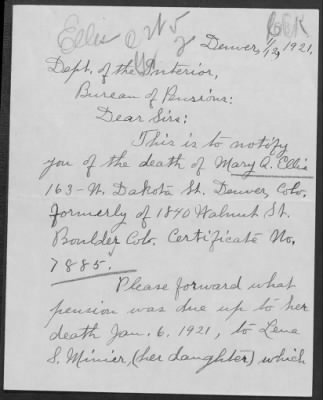 Ellis
Denver, 1/13, 1921.
Dept. of the Interior,
Bureau of Pensions:
Dear Sirs:
This is to notify
you of the death of Mary A. Ellis
163-N. Dakota St. Denver, Colo.
formerly of 1840 Walnut St.
Boulder Colo. Certificate No.
7885.
Please forward what
pension was due up to her
death Jan. 6. 1921, to Lena
S. Minier, (her daughter) which